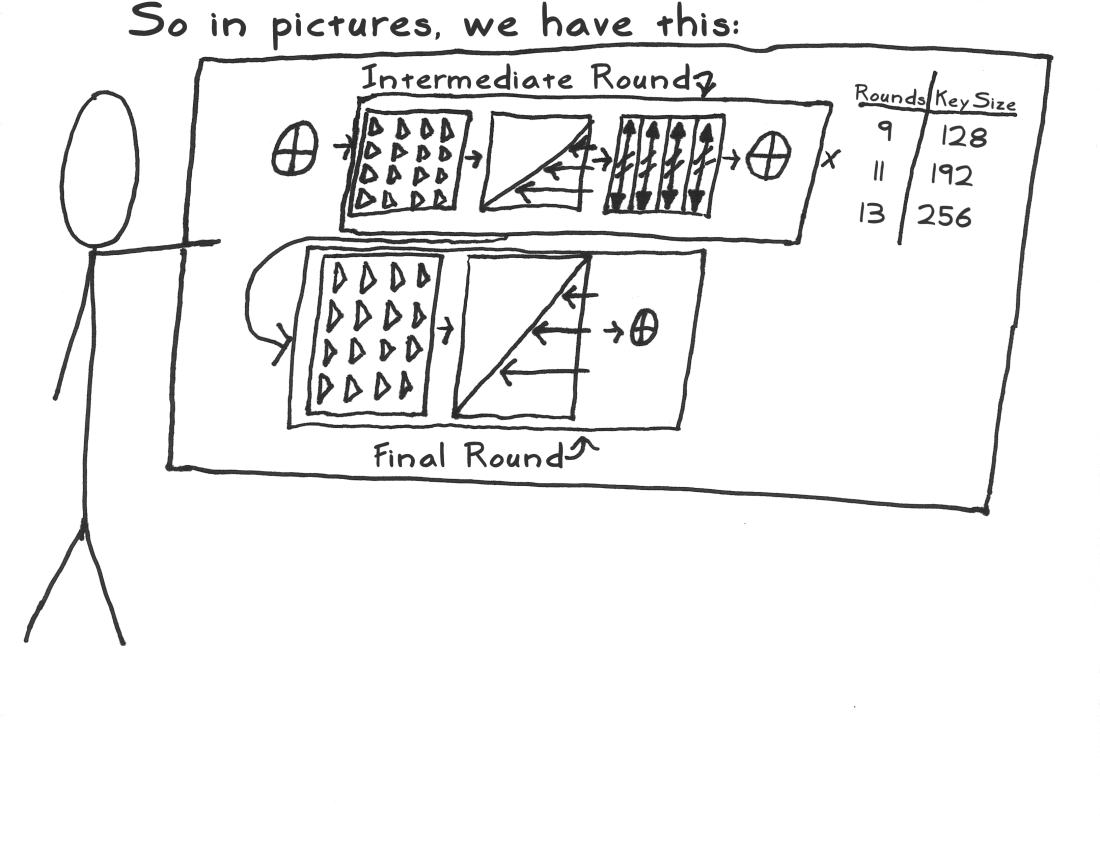 So in pictures, we have this:
Intermediate Round
Rounds Key Size
9 128
11 192
x
13 256
Final Round